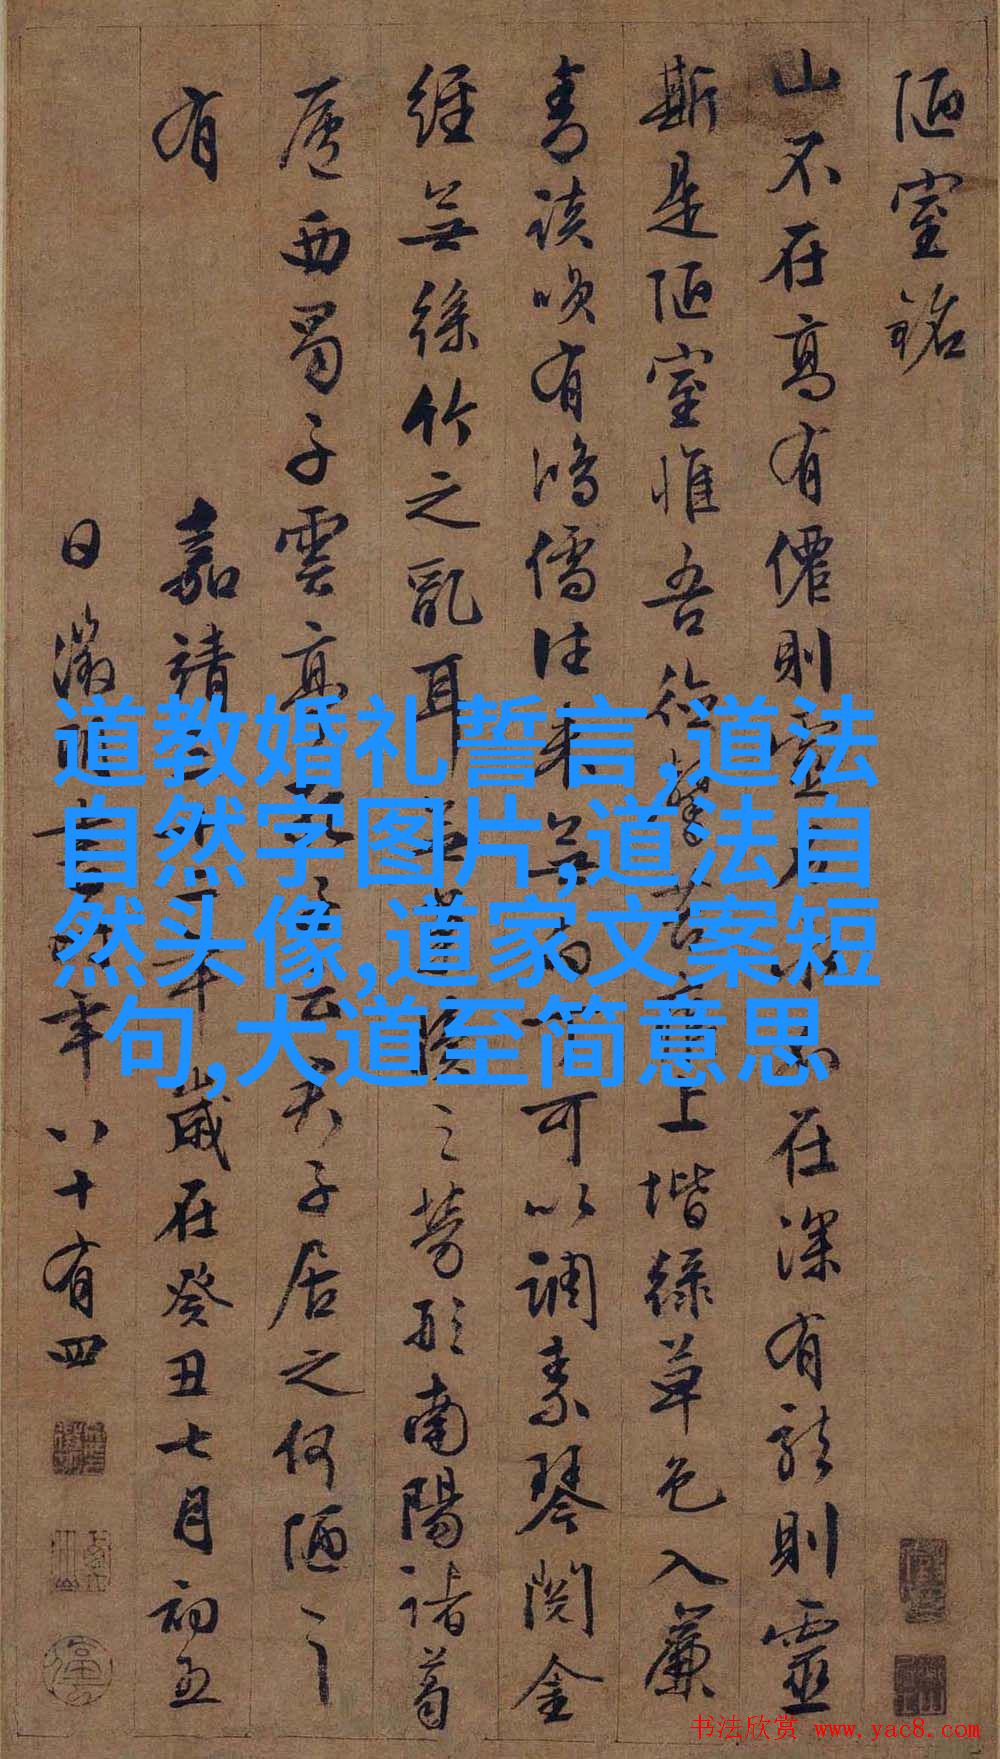 陋室銘
山不在高有僊則靈水不在深有龍則靈
斯是陋室惟吾德馨苔痕上堦綠草色入簾
青談笑有鴻儒往來無白丁可以調素琴閱金
經無絲竹之亂耳無案牘之勞形南陽諸葛
廬西蜀子雲亭孔子云君子居之何陋之
有
嘉靖三十二年歲在癸丑七月初五
日徵明書時年八十有四
道教婚礼誓言,道法
自然字图片,道法自
然头像,道家文案短
句,大道至简意思
书法欣赏 www.yac8.com